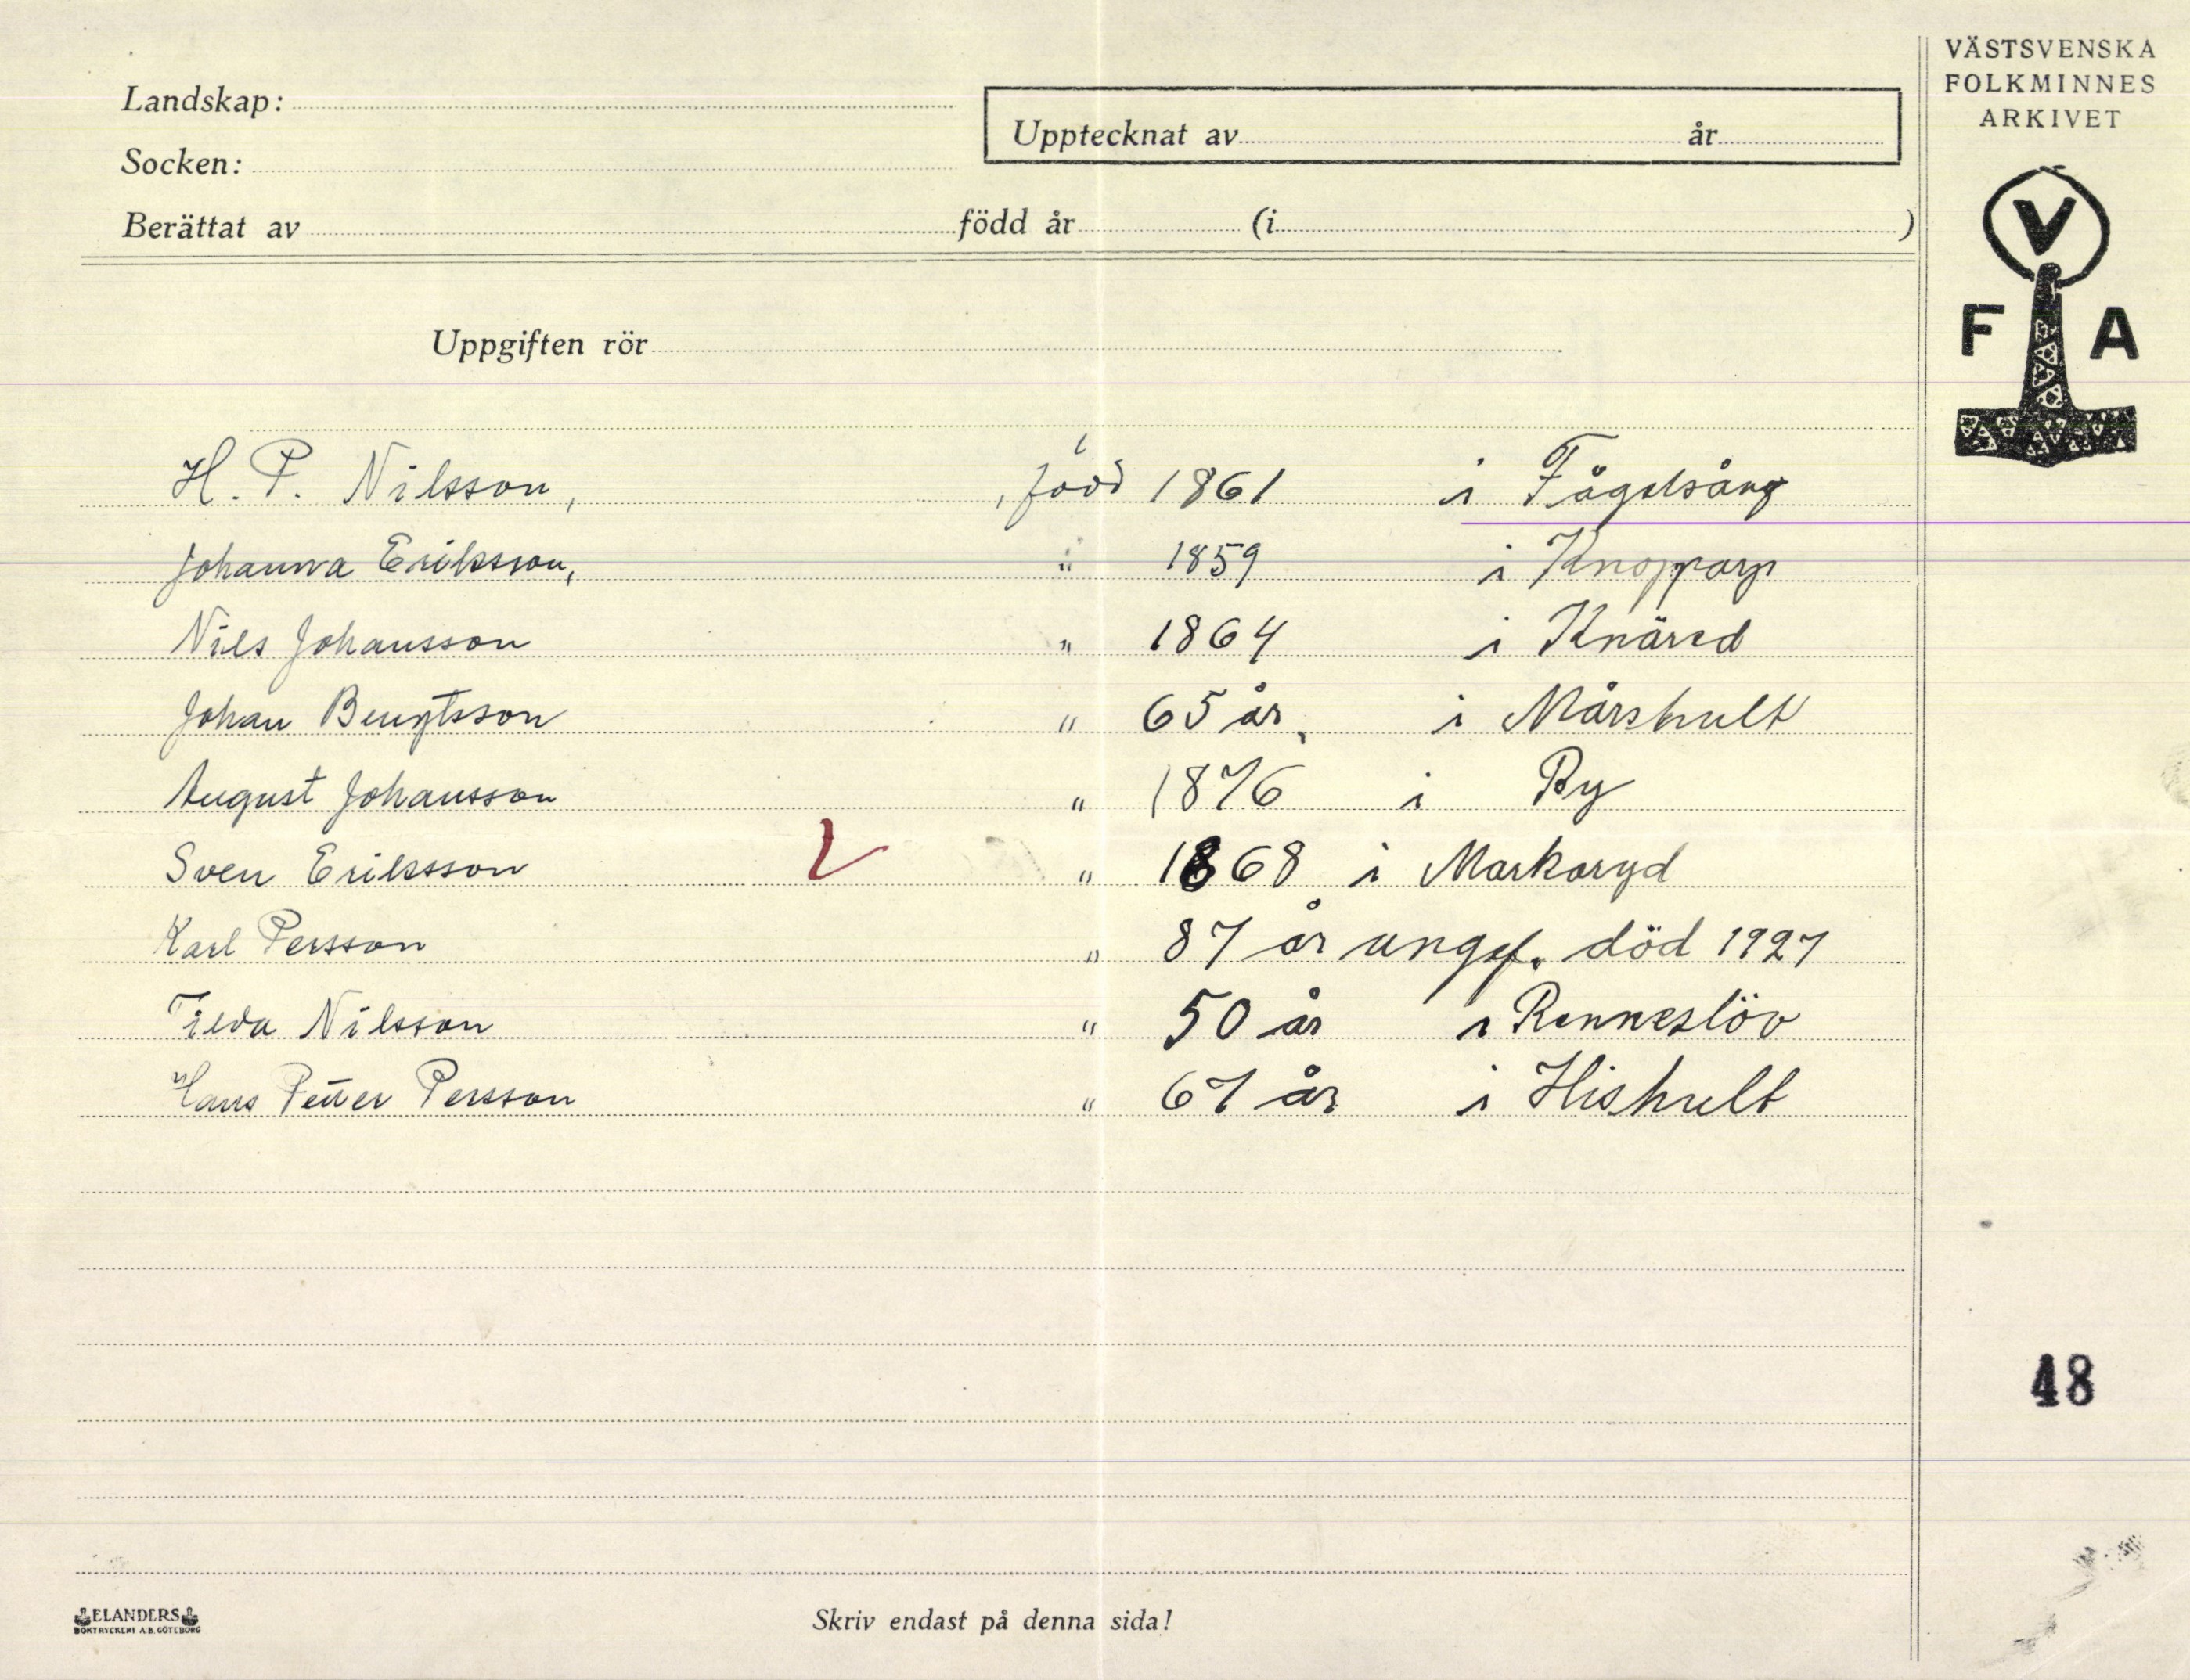 VÄSTSVENSKA
FOLKMINNES
ARKIVET
V
F A
Landskap:
Socken:
Upptecknat av år
Berättat av född år (i )
Uppgiften rör
H. P. Nilsson, , född 1861 i Fågelsång
Johanna Eriksson, " 1859 i Knopparp
Nils Johansson " 1864 i Knäred
Johan Bengtsson " 65 år, i Mårshult
August Johansson " 1876 i By
Sven Eriksson " 1868 i Markaryd
Karl Persson " 87 år ungef. död 1927
Tilda Nilsson " 50 år i Renneslöv
Hans Petter Persson " 67 år i Hishult
48
ELANDERS
BOKTRYCKERI A.B. GÖTEBORG
Skriv endast på denna sida!